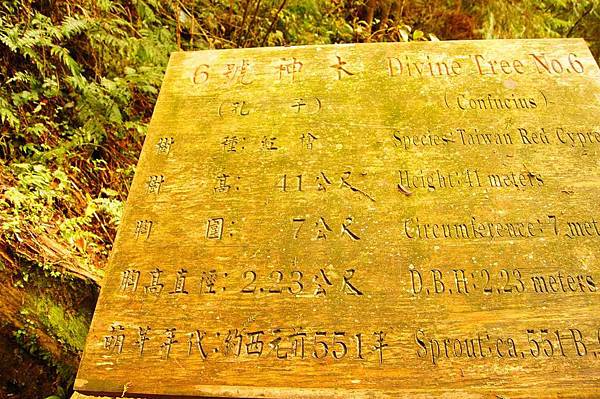 6號神木 Divine Tree No.6
(孔子) (Confucius)
樹種:紅檜 Species:Taiwan Red Cypre
樹高: 41公尺 Height:41 meters
胸圍: 7公尺 Circumference:7 met
胸高直徑:2.23公尺 D.B.H:2.23 meters
萌芽年代:約西元前551年 Sprout:ca.551 B.